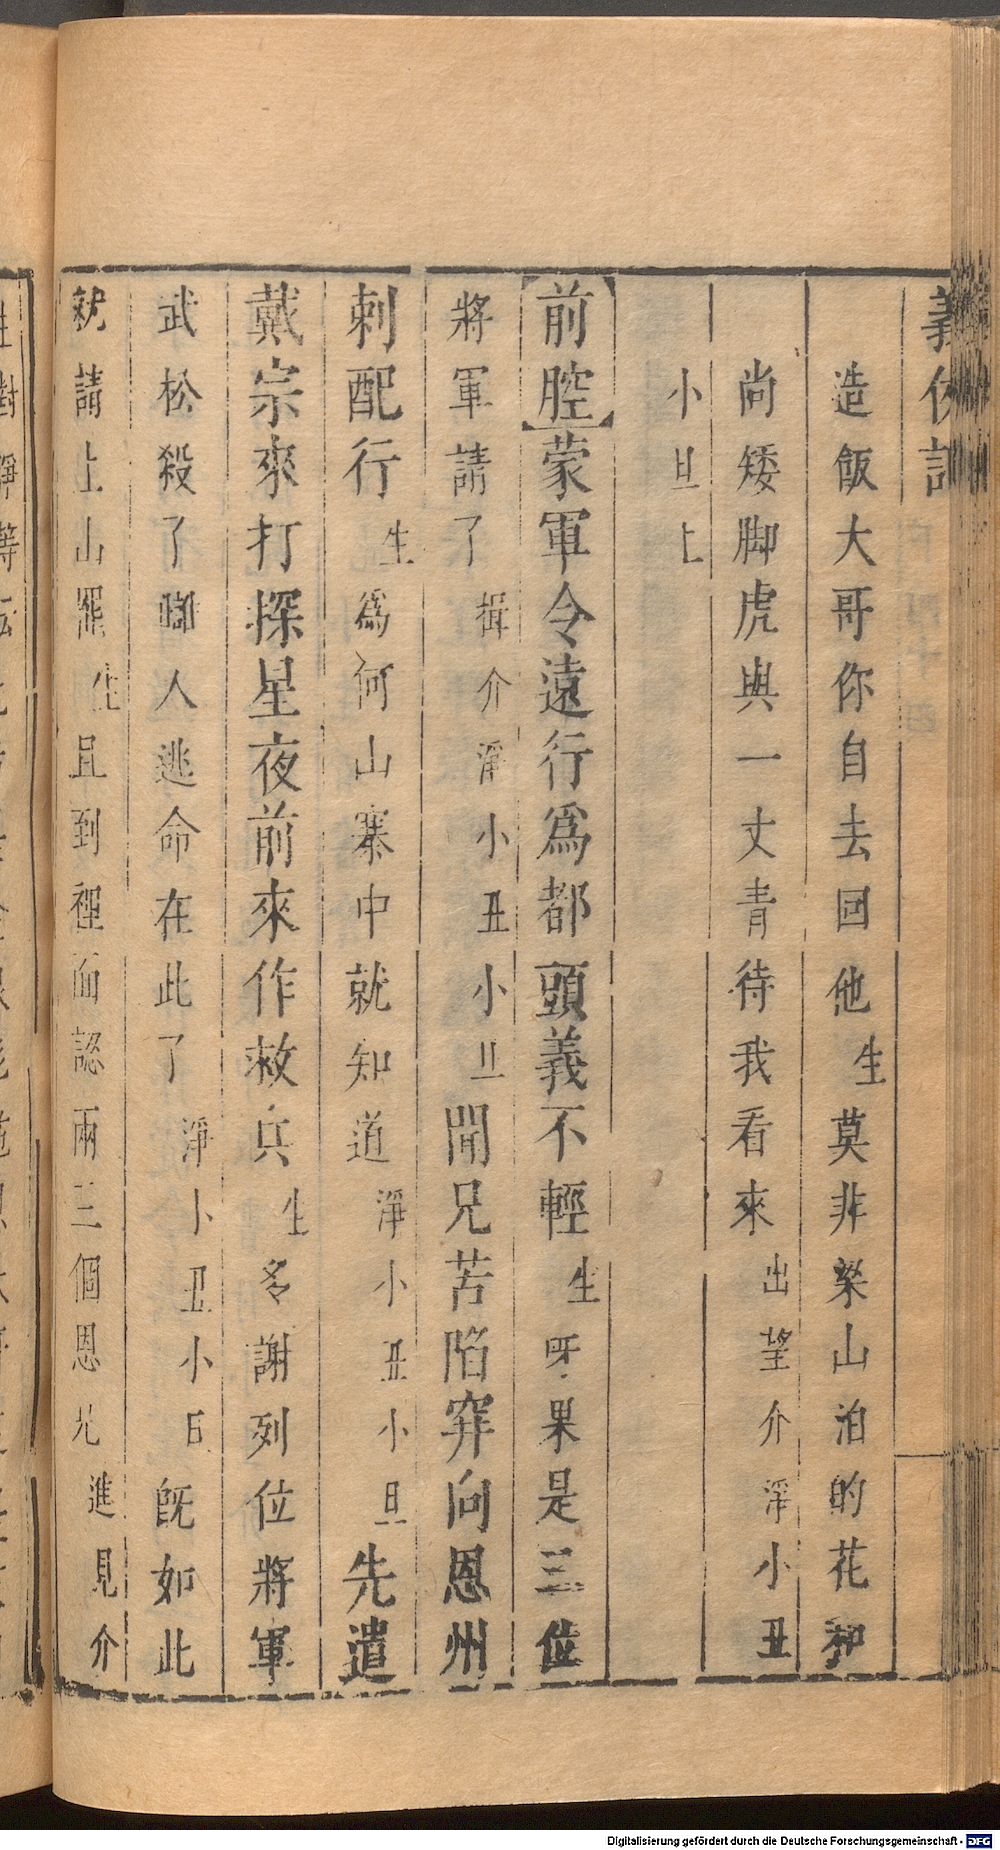 義俠記
造飯大哥你自去回他生莫非梁山泊的花和
尚矮脚虎與一丈青待我看來出望介淨小丑
小旦上
前腔蒙軍令遠行爲都頭義不輕生呀果是三位
將軍請了揖介淨小丑小旦聞兄苦陷穽向恩州
刺配行生爲何山寨中就知道淨小丑小旦先遣
戴宗來打探星夜前來作救兵生多謝列位將軍
武松殺了啣人逃命在此了淨小丑小旦旣如此
就請上山罷生且到裡面認兩三個恩兄進見介
Digitalisierung gefördert durch die Deutsche Forschungsgemeinschaft - DFG